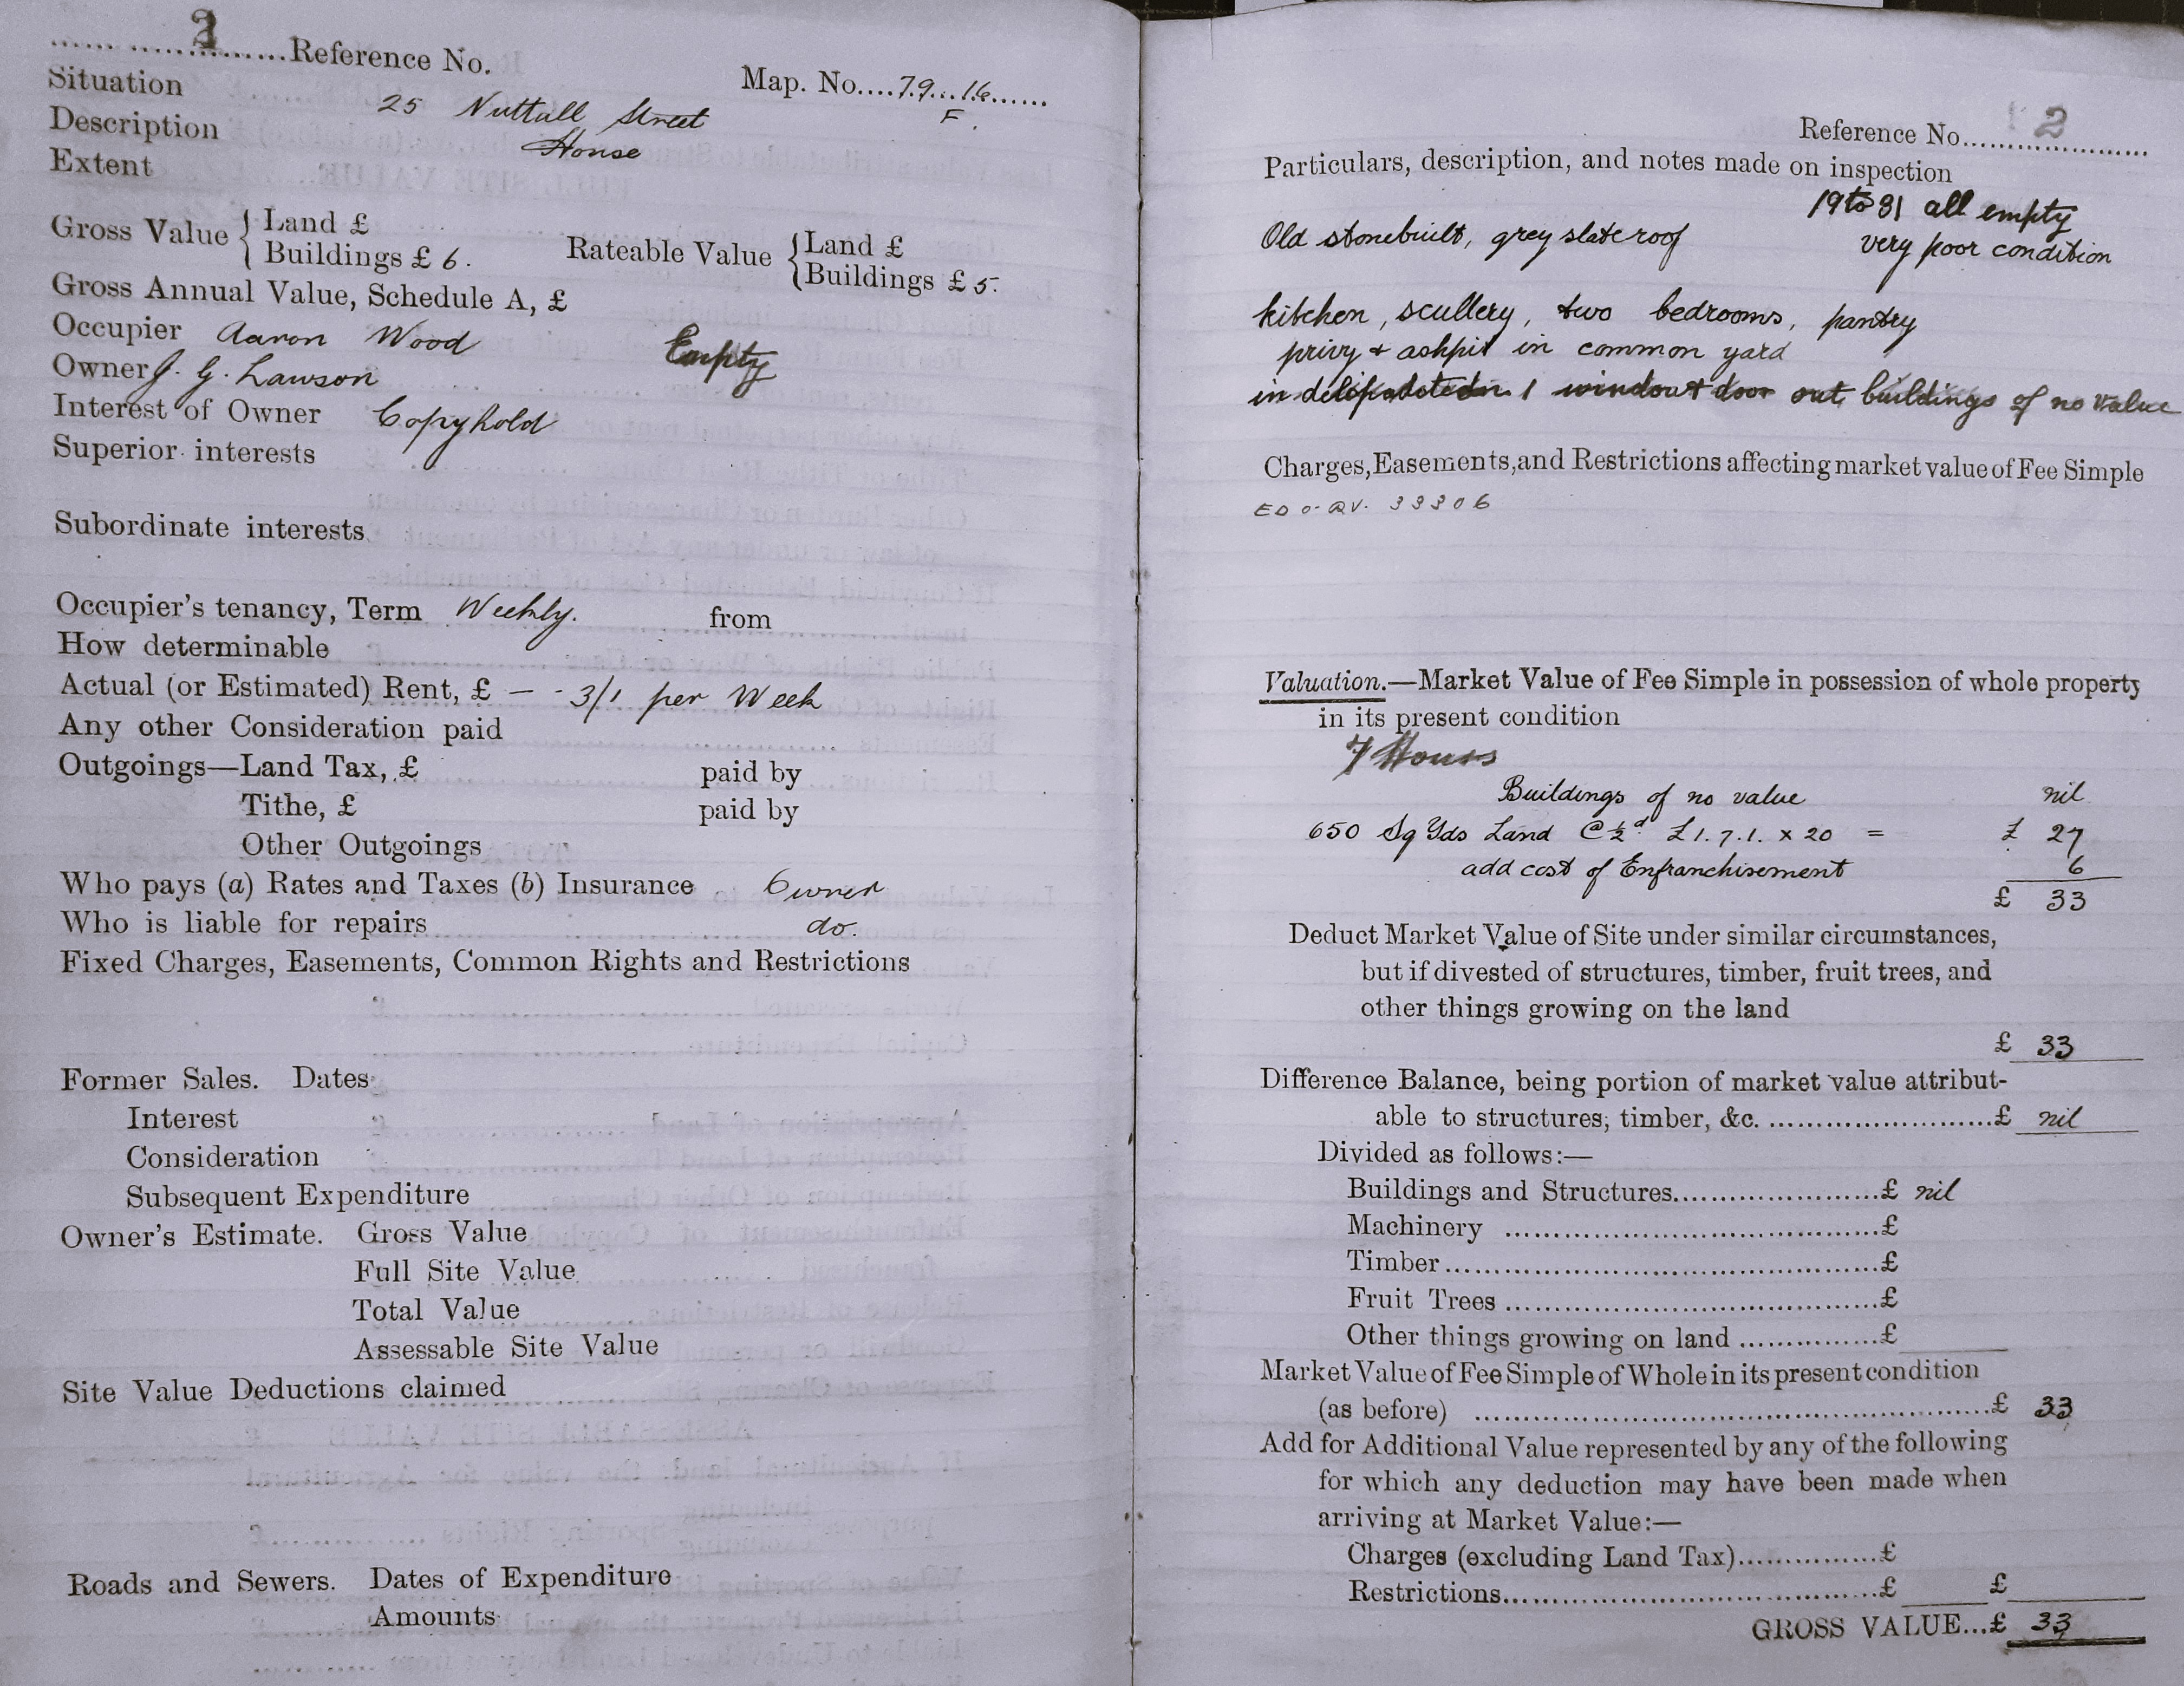 2
Reference No.
Map. No. 79.16
F.
Situation 25 Nuttall Street
Description House
Extent
Gross Value { Land £
Buildings £ 6.
Rateable Value { Land £
Buildings £ 5.
Gross Annual Value, Schedule A, £
Occupier Aaron Wood Empty
Owner J. G. Lawson
Interest of Owner Copyhold
Superior interests
Subordinate interests
Occupier's tenancy, Term Weekly. from
How determinable
Actual (or Estimated) Rent, £ – - 3/1 per Week
Any other Consideration paid
Outgoings—Land Tax, £ paid by
Tithe, £ paid by
Other Outgoings
Who pays (a) Rates and Taxes (b) Insurance Owner
Who is liable for repairs do.
Fixed Charges, Easements, Common Rights and Restrictions
Former Sales. Dates
Interest
Consideration
Subsequent Expenditure
Owner's Estimate. Gross Value
Full Site Value
Total Value
Assessable Site Value
Site Value Deductions claimed
Roads and Sewers. Dates of Expenditure
Amounts
Reference No. 2
Particulars, description, and notes made on inspection
19 to 31 all empty
Old stonebuilt, grey slate roof very poor condition
kitchen, scullery, two bedrooms, pantry
privy & ashpit in common yard
in 1 window & door out buildings of no value
Charges, Easements, and Restrictions affecting market value of Fee Simple
33306
Valuation.—Market Value of Fee Simple in possession of whole property
in its present condition
7 Hours
Buildings of no value nil
650 Sq Yds Land @ ½d £1.7.1. × 20 = £ 27
add cost of Enfranchisement 6
£ 33
Deduct Market Value of Site under similar circumstances,
but if divested of structures, timber, fruit trees, and
other things growing on the land
£ 33
Difference Balance, being portion of market value attribut-
able to structures, timber, &c. £ nil
Divided as follows:—
Buildings and Structures £ nil
Machinery £
Timber £
Fruit Trees £
Other things growing on land £
Market Value of Fee Simple of Whole in its present condition
(as before) £ 33
Add for Additional Value represented by any of the following
for which any deduction may have been made when
arriving at Market Value:—
Charges (excluding Land Tax) £
Restrictions £ £
GROSS VALUE...£ 33